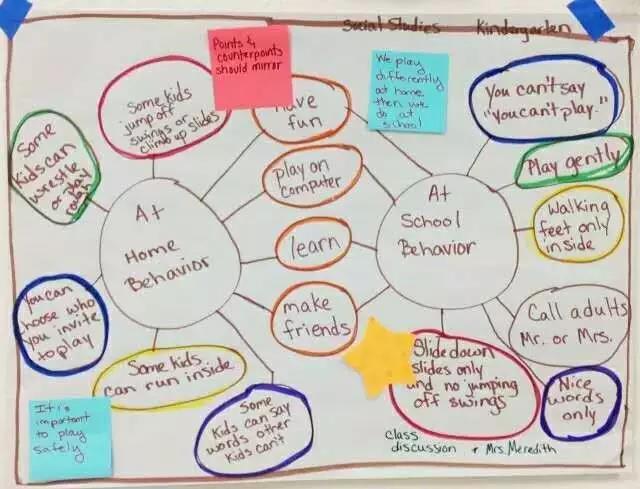 Social Studies Kindergarten
Points &
counterpoints
should mirror
We play
differently
at home
then we
do at
school
Some kids
jump off
swings or
climb up slides
Some
kids can
wrestle
or play
rough
At
Home
Behavior
You can
choose who
you invite
to play
Some kids
can run inside
Some
kids can say
words other
kids can't
have
fun
play on
computer
learn
make
friends
At
School
Behavior
You can't say
"you can't play."
Play gently
Walking
feet only
inside
Call adults
Mr. or Mrs.
Nice
words
only
Slide down
slides only
and no jumping
off swings
It is
important
to play
safely
class
discussion + Mrs. Meredith